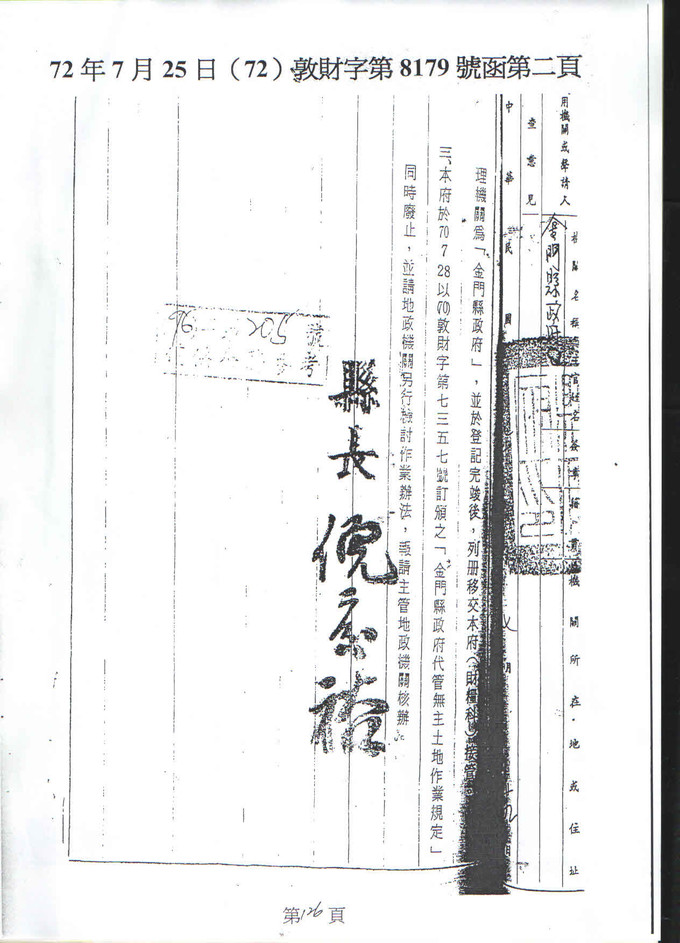 72年7月25日（72）敦財字第8179號函第二頁
用機關或聲請人
查意見
中華民國
金門縣政府
機關所在地或住址
理機關為「金門縣政府」，並於登記完竣後，列冊移交本府（財糧科）接管
三、本府於70 7 28以(70)敦財字第七三五七號訂頒之「金門縣政府代管無主土地作業規定」
同時廢止，並請地政機關另行檢討作業辦法，報請主管地政機關核辦。
縣長
96 205 號
考
第126頁